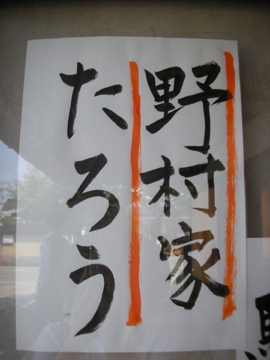 野村家
たろう